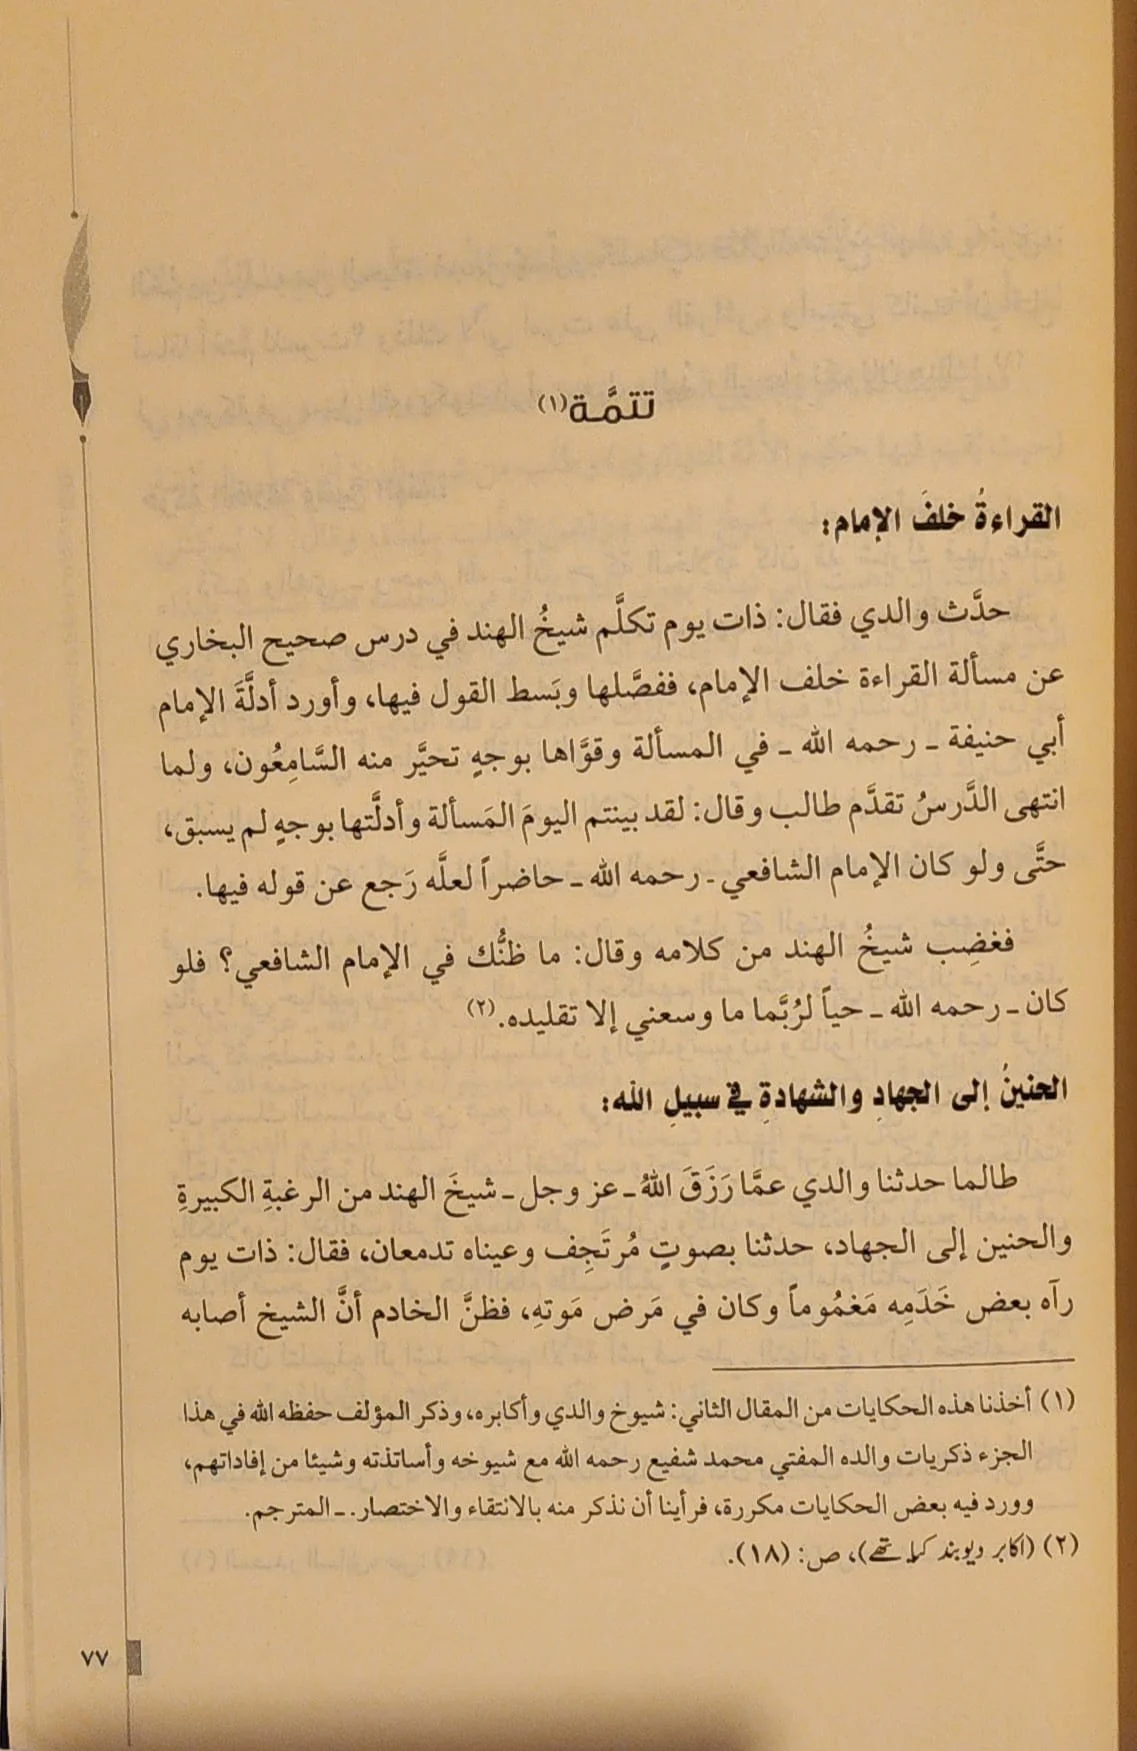 تتمَّة(١)
القراءةُ خلفَ الإمام:
حدَّث والدي فقال: ذات يوم تكلَّم شيخُ الهند في درس صحيح البخاري
عن مسألة القراءة خلف الإمام، ففصَّلها وبَسط القول فيها، وأورد أدلَّةَ الإمام
أبي حنيفة ـ رحمه الله ـ في المسألة وقوَّاها بوجهٍ تحيَّر منه السَّامِعُون، ولما
انتهى الدَّرسُ تقدَّم طالب وقال: لقد بينتم اليومَ المَسألة وأدلَّتها بوجهٍ لم يسبق،
حتَّى ولو كان الإمام الشافعي ـ رحمه الله ـ حاضراً لعلَّه رَجع عن قوله فيها.
فغضِب شيخُ الهند من كلامه وقال: ما ظنُّك في الإمام الشافعي؟ فلو
كان ـ رحمه الله ـ حياً لرُبَّما ما وسعني إلا تقليده.(٢)
الحنينُ إلى الجهادِ والشهادةِ في سبيلِ الله:
طالما حدثنا والدي عمَّا رَزَقَ اللهُ ـ عز وجل ـ شيخَ الهند من الرغبةِ الكبيرةِ
والحنين إلى الجهاد، حدثنا بصوتٍ مُرتَجِف وعيناه تدمعان، فقال: ذات يوم
رآه بعض خَدَمِه مَغمُوماً وكان في مَرض مَوتهِ، فظنَّ الخادم أنَّ الشيخ أصابه
(١) أخذنا هذه الحكايات من المقال الثاني: شيوخ والدي وأكابره، وذكر المؤلف حفظه الله في هذا
الجزء ذكريات والده المفتي محمد شفيع رحمه الله مع شيوخه وأساتذته وشيئا من إفاداتهم،
وورد فيه بعض الحكايات مكررة، فرأينا أن نذكر منه بالانتقاء والاختصار. ـ المترجم.
(٢) (اكابر ديوبند كيا تھے)، ص: (١٨).
٧٧